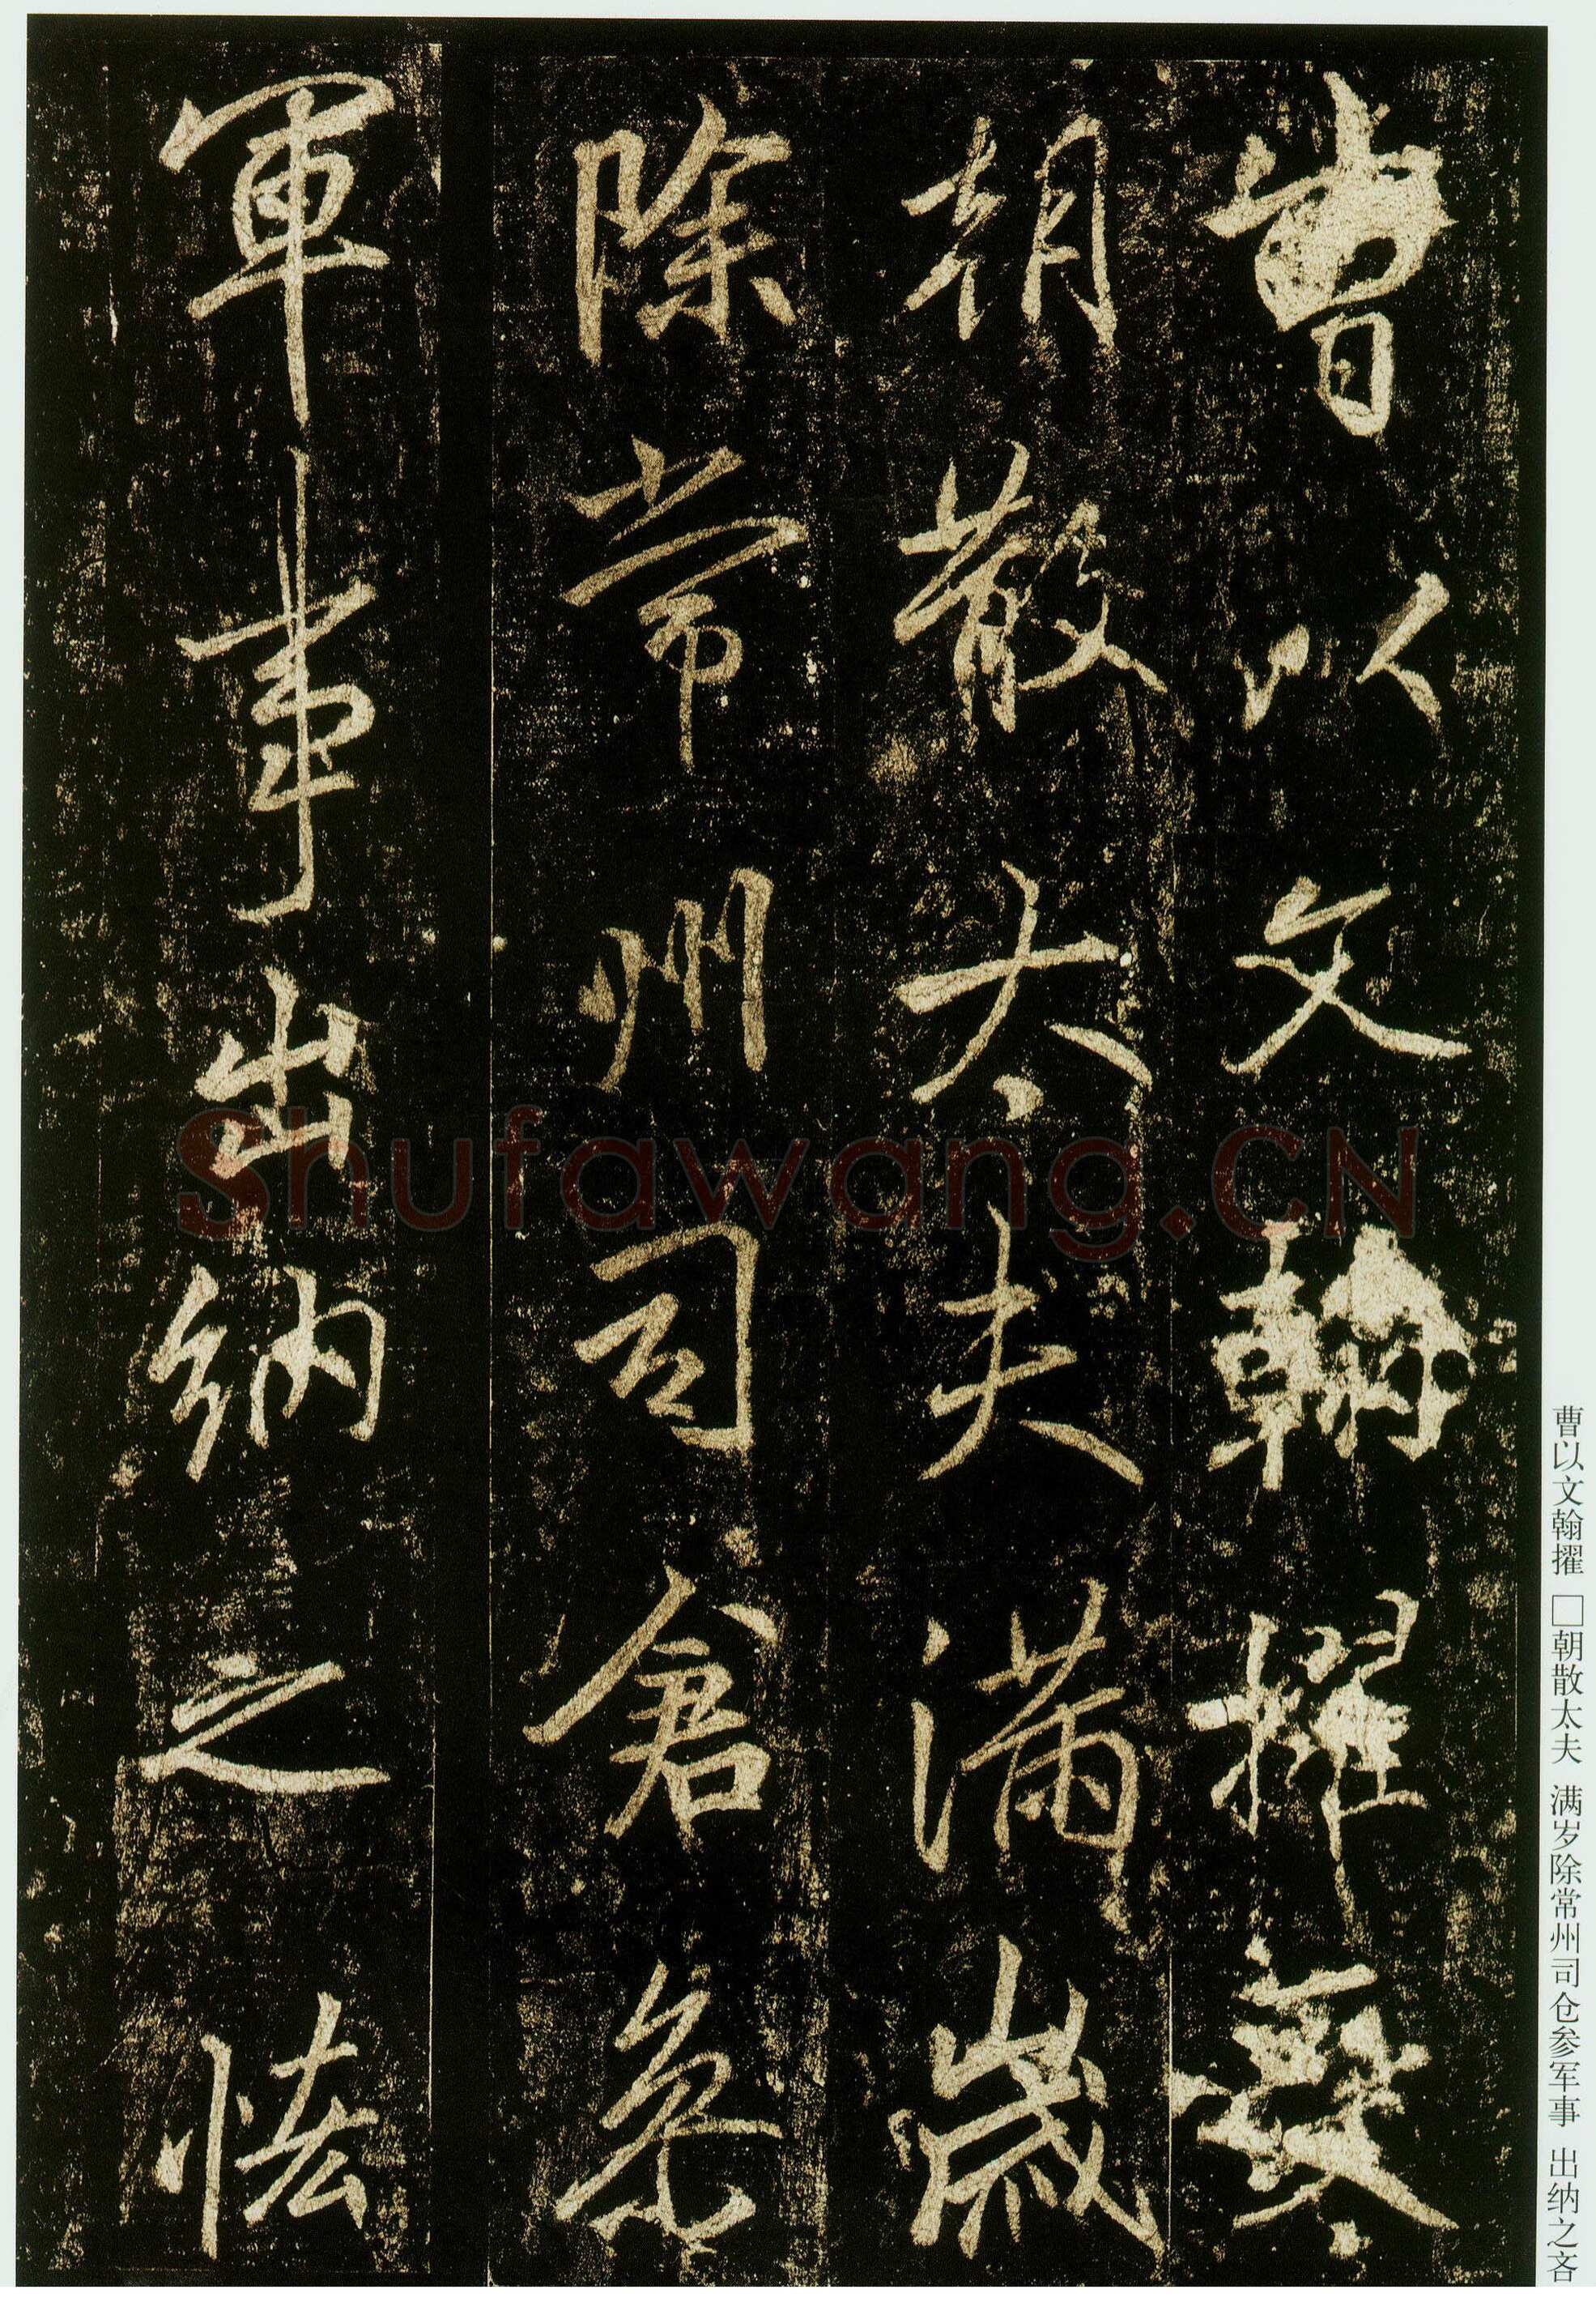 曹以文翰擢
朝散太夫滿歲
除常州司倉叅
軍事出納之恡
曹以文翰擢 □朝散太夫 满岁除常州司仓参军事 出纳之吝
Shufawang.CN